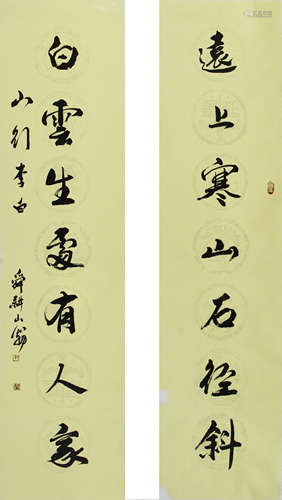 遠上寒山石径斜
白雲生處有人家
山行李白
舜耕山翁